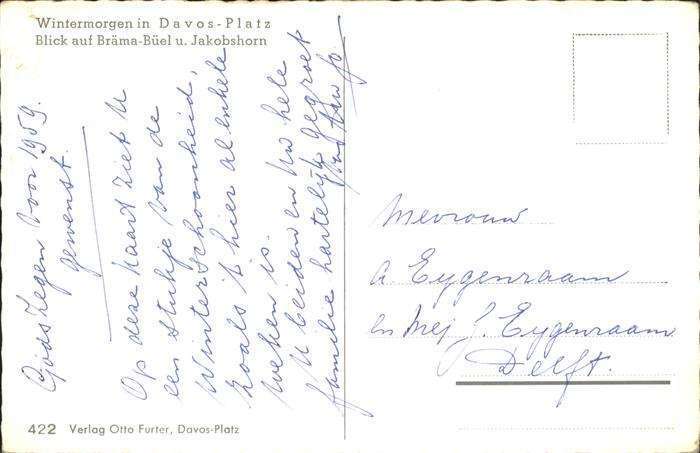 Wintermorgen in Davos-Platz
Blick auf Bräma-Büel u. Jakobshorn
Gods zegen voor 1959.
gewenst.
Op deze kaart ziet U
een stukje van de
Winterschoonheid,
zoals 't hier al enkele
weken is.
U beiden en Uw hele
familie hartelijk gegroet
Mevrouw
A Eygenraam
en Mej. J. Eygenraam
Delft.
422 Verlag Otto Furter, Davos-Platz